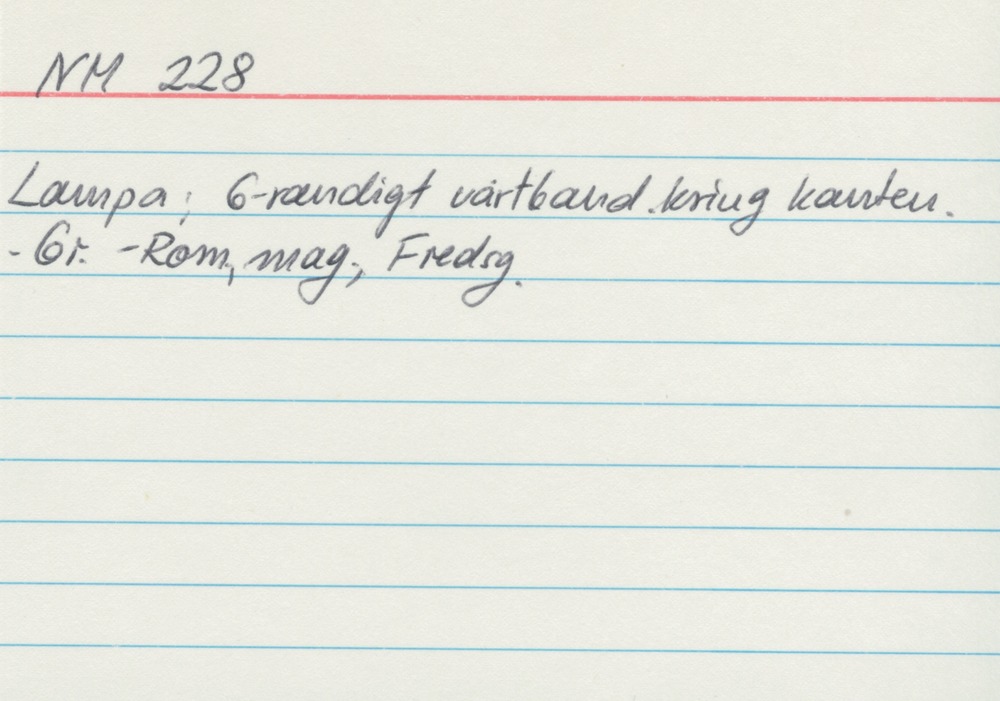 NM 228
Lampa; 6-randigt vårtband kring kanten.
- Gr. -Rom, mag., Fredsg.